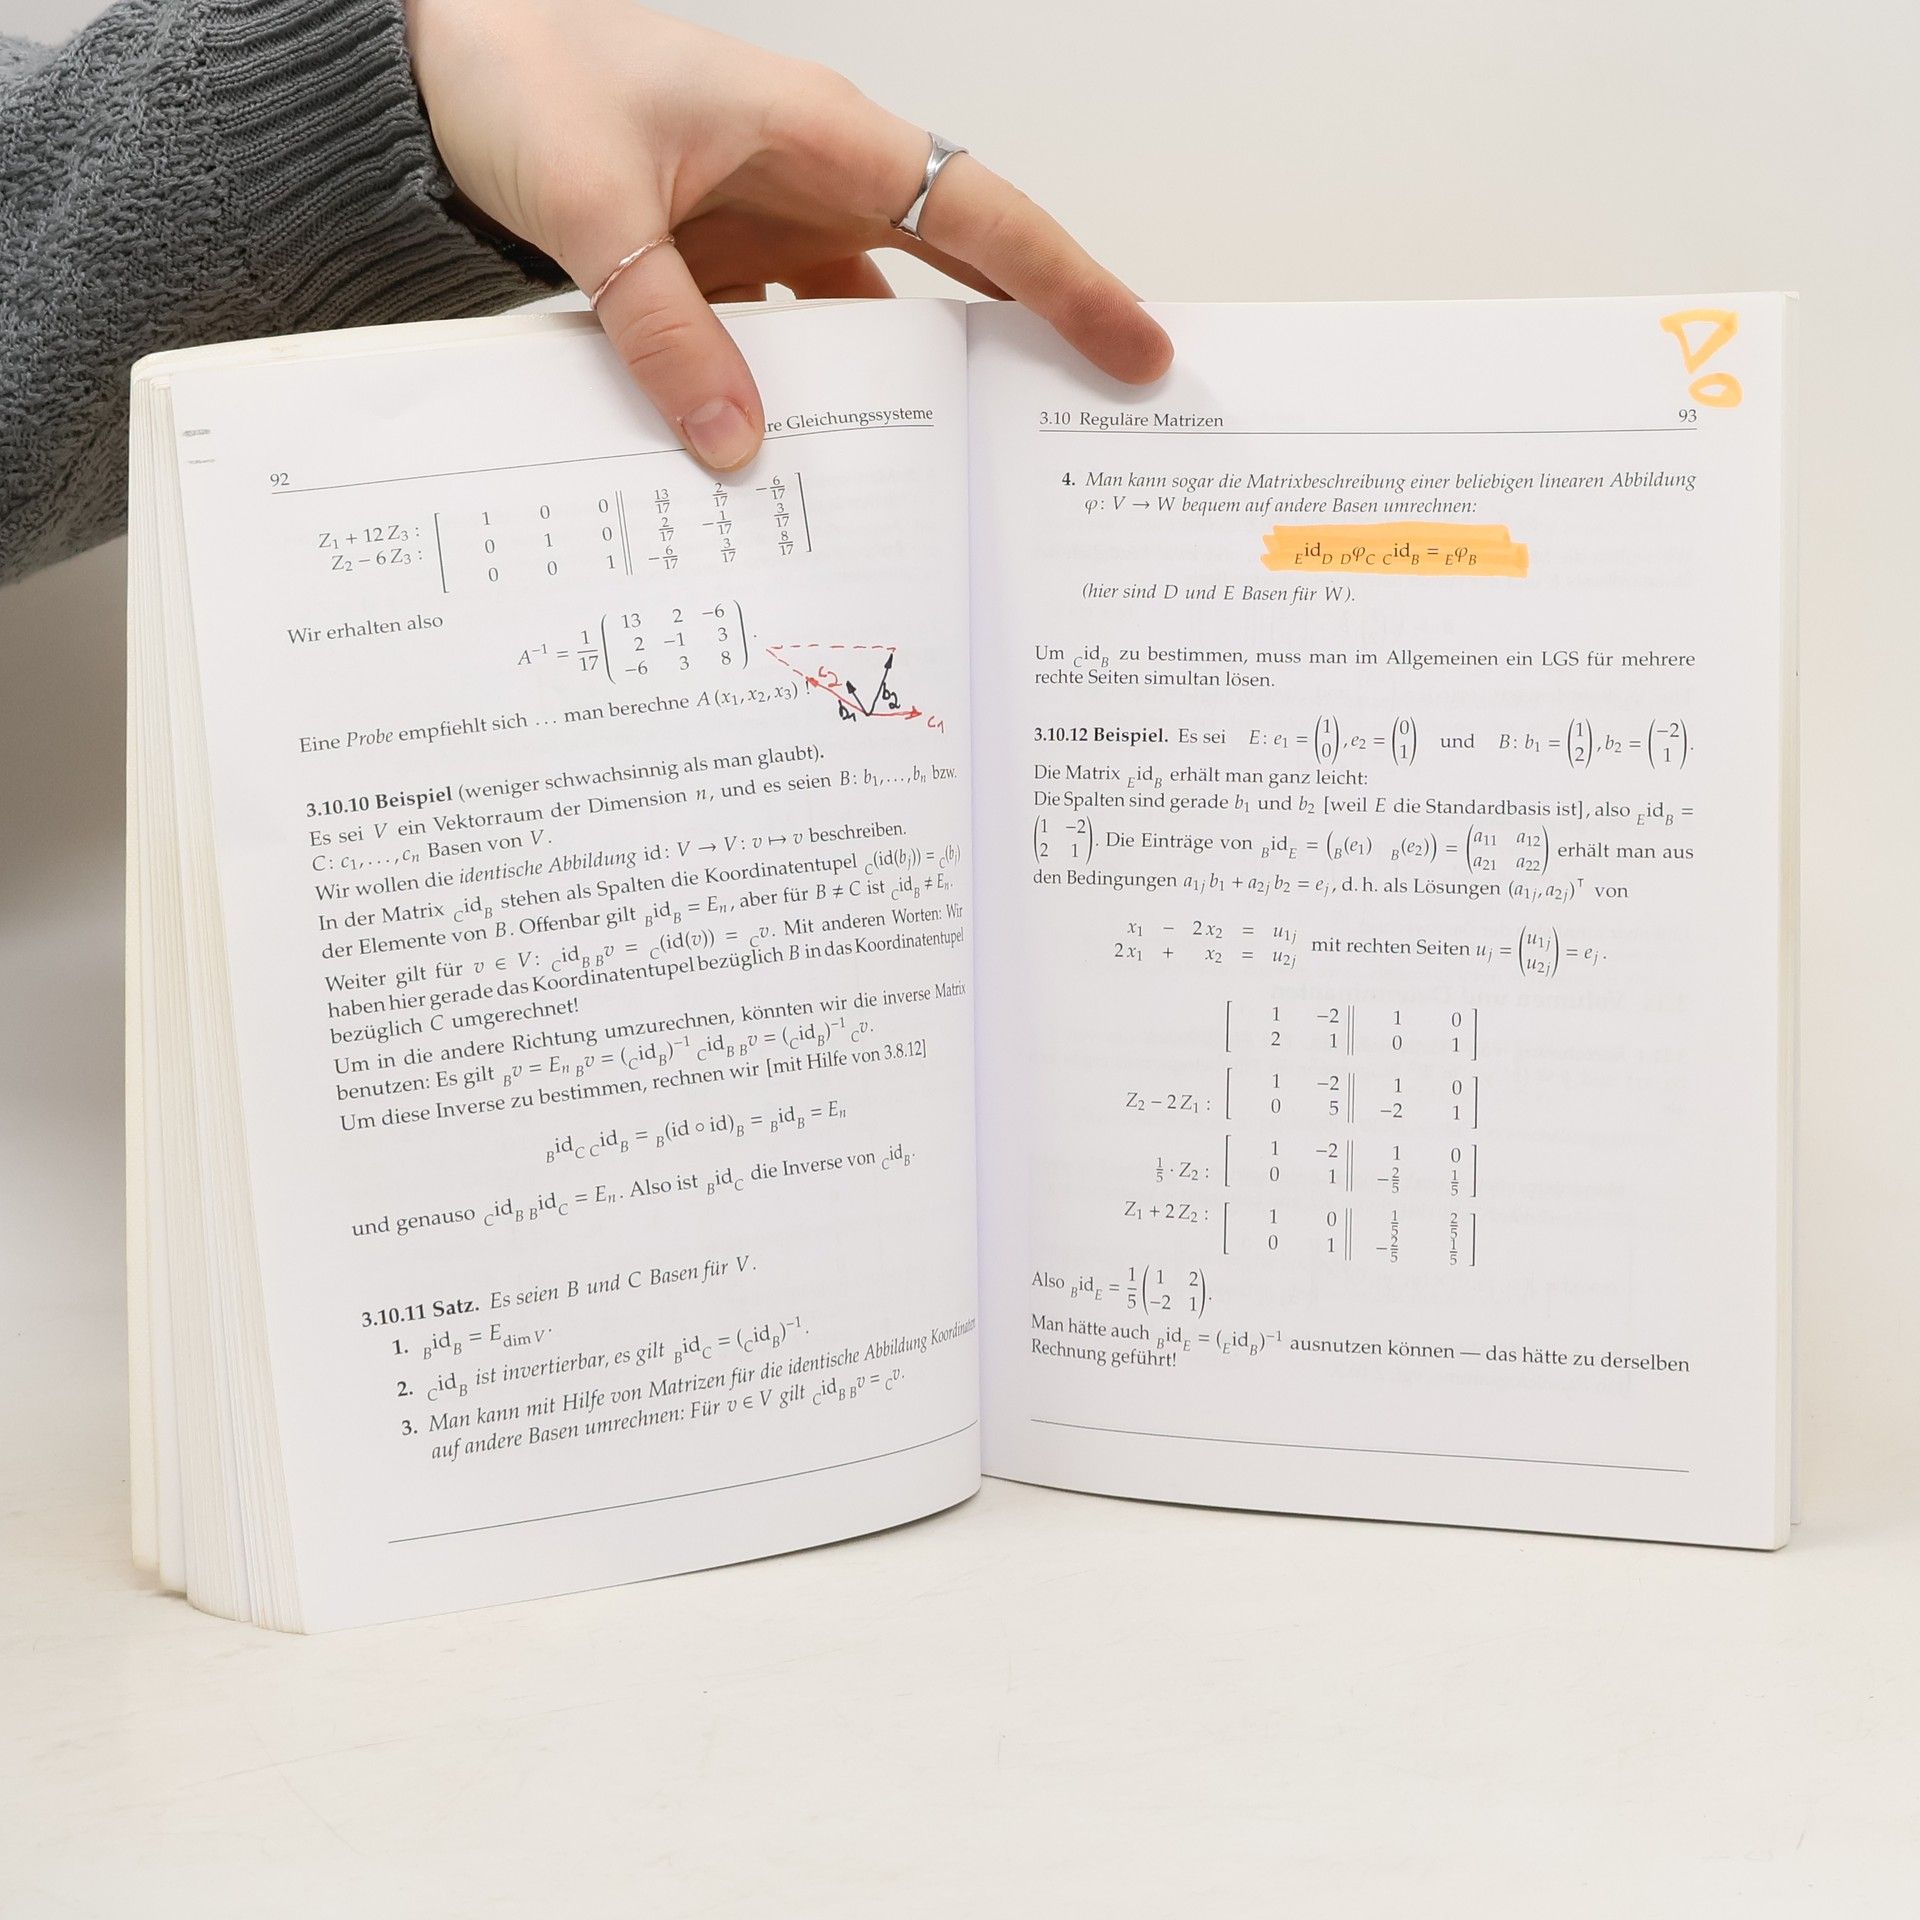 92
re Gleichungssysteme
Z₁ + 12 Z₃ : [ 1 0 0 || 13/17 2/17 −6/17 ]
Z₂ − 6 Z₃ : [ 0 1 0 || 2/17 −1/17 3/17 ]
[ 0 0 1 || −6/17 3/17 8/17 ]
Wir erhalten also
A⁻¹ = 1/17 ( 13 2 −6
2 −1 3
−6 3 8 ) .
Eine Probe empfiehlt sich … man berechne A (x₁, x₂, x₃) !
c₂
b₁
b₂
c₁
3.10.10 Beispiel (weniger schwachsinnig als man glaubt).
Es sei V ein Vektorraum der Dimension n, und es seien B: b₁,…,bₙ bzw.
C: c₁,…,cₙ Basen von V.
Wir wollen die identische Abbildung id: V → V: v ↦ v beschreiben.
In der Matrix _C id_B stehen als Spalten die Koordinatentupel _C(id(b_j)) = _C(b_j)
der Elemente von B. Offenbar gilt _B id_B = Eₙ, aber für B ≠ C ist _C id_B ≠ Eₙ.
Weiter gilt für v ∈ V: _C id_B _B v = _C(id(v)) = _C v. Mit anderen Worten: Wir
haben hier gerade das Koordinatentupel bezüglich B in das Koordinatentupel
bezüglich C umgerechnet!
Um in die andere Richtung umzurechnen, könnten wir die inverse Matrix
benutzen: Es gilt _B v = Eₙ _B v = (_C id_B)⁻¹ _C id_B _B v = (_C id_B)⁻¹ _C v.
Um diese Inverse zu bestimmen, rechnen wir [mit Hilfe von 3.8.12]
_B id_C _C id_B = _B(id ∘ id)_B = _B id_B = Eₙ
und genauso _C id_B _B id_C = Eₙ. Also ist _B id_C die Inverse von _C id_B.
3.10.11 Satz. Es seien B und C Basen für V.
1. _B id_B = E_dim V.
2. _C id_B ist invertierbar, es gilt _B id_C = (_C id_B)⁻¹.
3. Man kann mit Hilfe von Matrizen für die identische Abbildung Koordinaten
auf andere Basen umrechnen: Für v ∈ V gilt _C id_B _B v = _C v.
3.10 Reguläre Matrizen
93
4. Man kann sogar die Matrixbeschreibung einer beliebigen linearen Abbildung
φ: V → W bequem auf andere Basen umrechnen:
_E id_D _D φ_C _C id_B = _E φ_B
(hier sind D und E Basen für W).
Um _C id_B zu bestimmen, muss man im Allgemeinen ein LGS für mehrere
rechte Seiten simultan lösen.
3.10.12 Beispiel. Es sei E: e₁ = (1 0), e₂ = (0 1) und B: b₁ = (1 2), b₂ = (−2 1).
Die Matrix _E id_B erhält man ganz leicht:
Die Spalten sind gerade b₁ und b₂ [weil E die Standardbasis ist], also _E id_B =
(1 −2 2 1). Die Einträge von _B id_E = (_B(e₁) _B(e₂)) = (a₁₁ a₁₂ a₂₁ a₂₂) erhält man aus
den Bedingungen a₁ⱼ b₁ + a₂ⱼ b₂ = eⱼ, d. h. als Lösungen (a₁ⱼ, a₂ⱼ)ᵀ von
x₁ − 2x₂ = u₁ⱼ
2x₁ + x₂ = u₂ⱼ mit rechten Seiten uⱼ = (u₁ⱼ u₂ⱼ) = eⱼ.
[ 1 −2 || 1 0 ]
[ 2 1 || 0 1 ]
Z₂ − 2 Z₁ : [ 1 −2 || 1 0 ]
[ 0 5 || −2 1 ]
1/5 · Z₂ : [ 1 −2 || 1 0 ]
[ 0 1 || −2/5 1/5 ]
Z₁ + 2 Z₂ : [ 1 0 || 1/5 2/5 ]
[ 0 1 || −2/5 1/5 ]
Also _B id_E = 1/5 (1 2 −2 1).
Man hätte auch _B id_E = (_E id_B)⁻¹ ausnutzen können — das hätte zu derselben
Rechnung geführt!